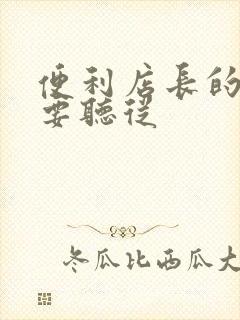 便利店長的
要聽從
冬瓜比西瓜大